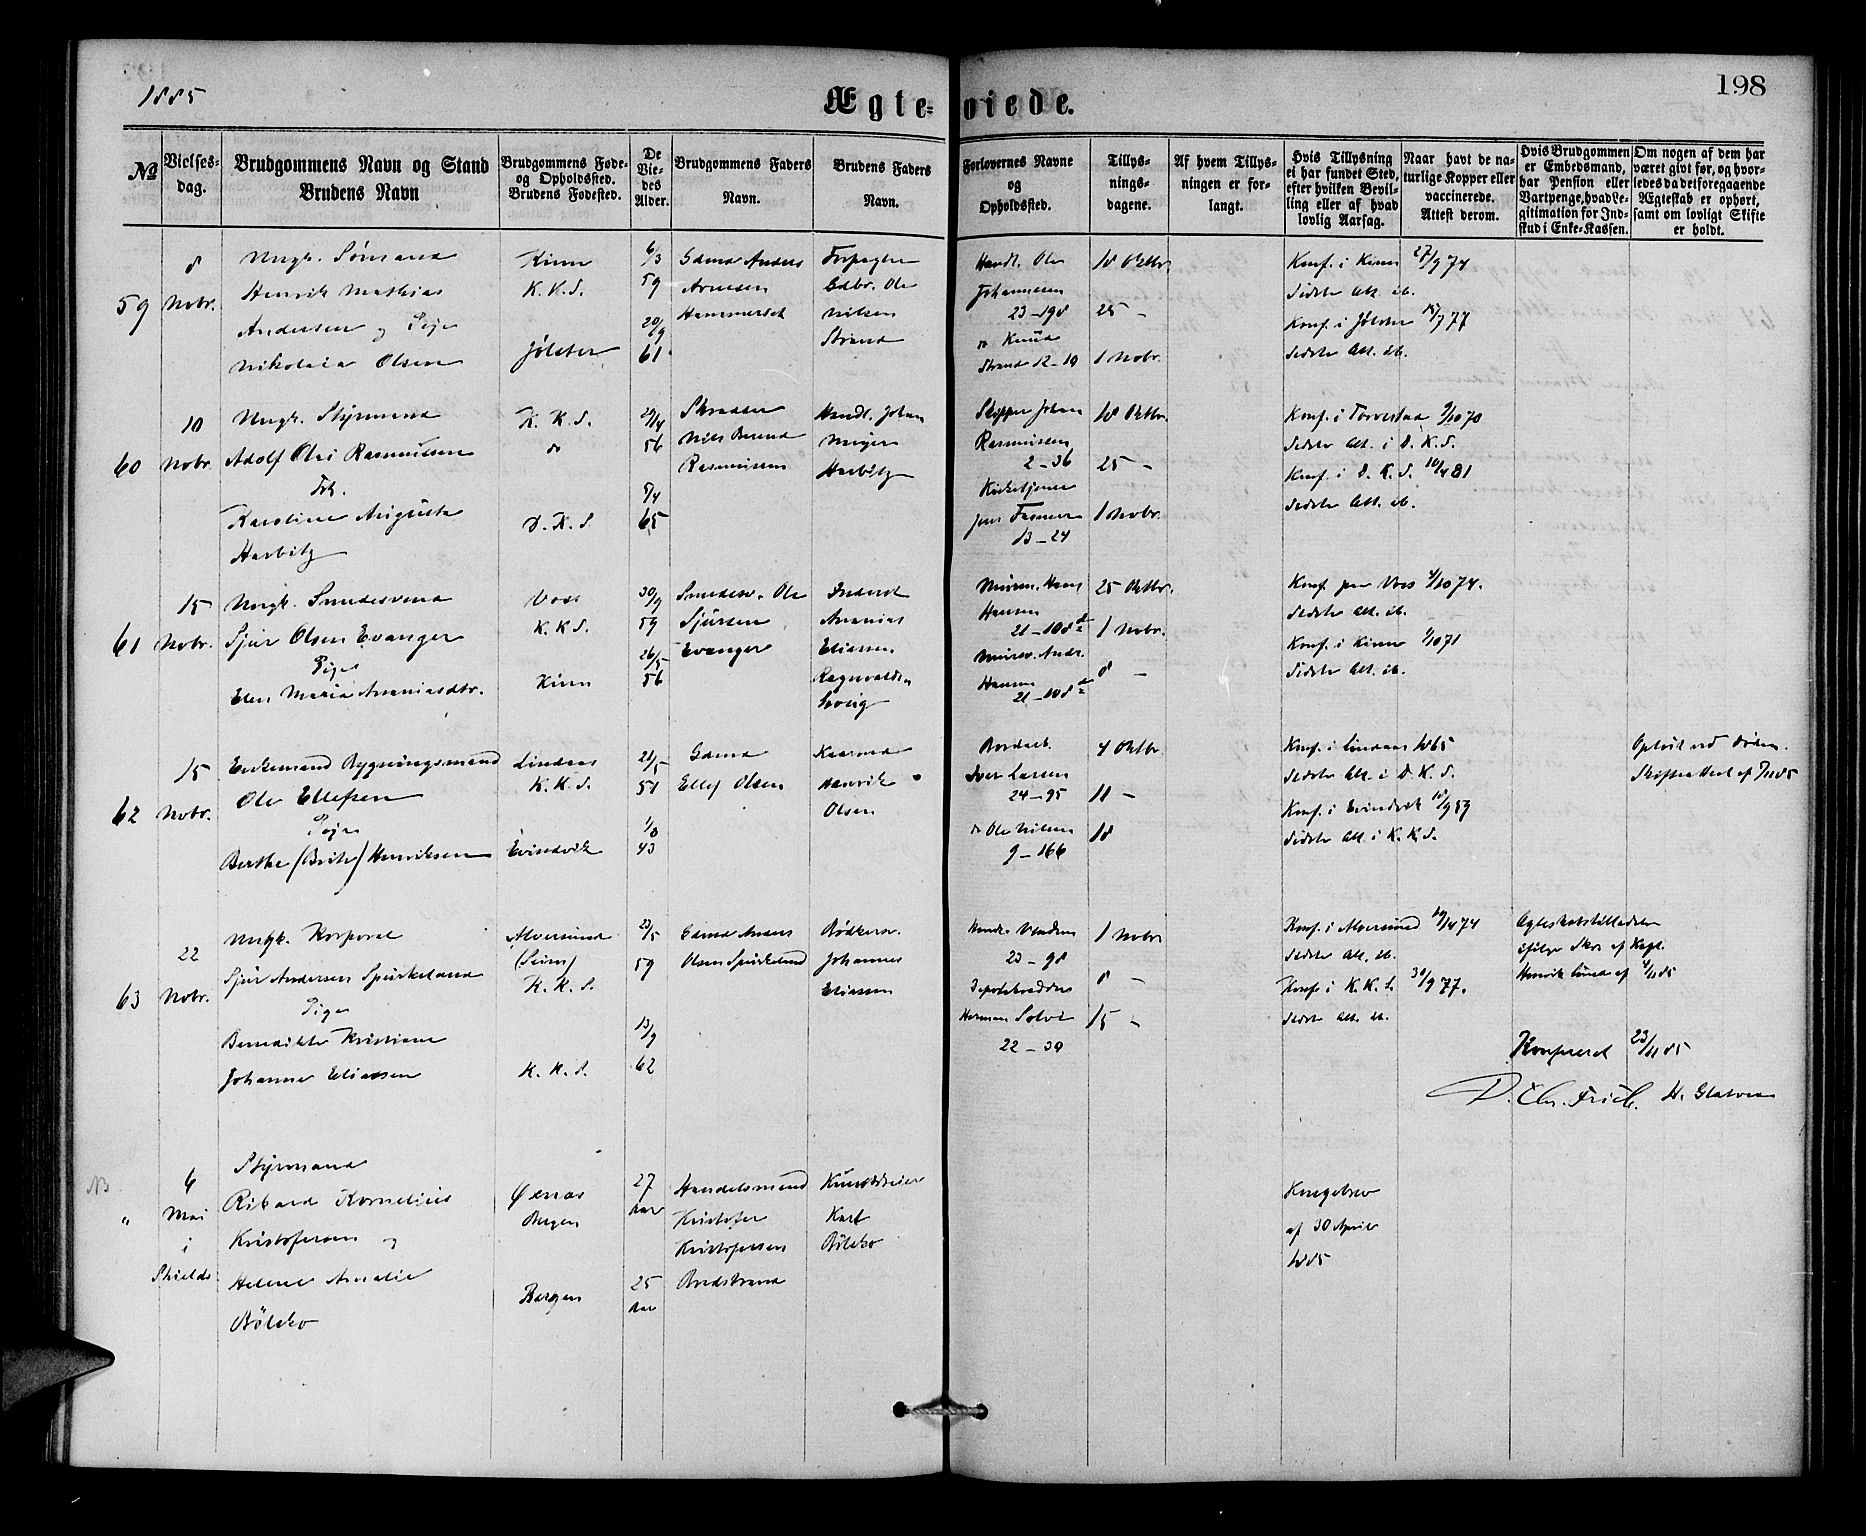 1885
Ægte-viede.
198
№
Vielses-dag.
Brudgommens Navn og Stand
Brudens Navn
Brudgommens Føde-
og Opholdsted.
Brudens Fødested.
De
Vie-
des
Alder.
Brudgommens Faders
Navn.
Brudens Faders
Navn.
Forlovernes Navne
og
Opholdsted.
Tillys-
nings-
dagene.
Af hvem Tillys-
ningen er for-
langt.
Hvis Tillysning
ei har fundet Sted,
efter hvilken Bevil-
ling eller af hvad
lovlig Aarsag.
Naar havt de na-
turlige Kopper eller
vaccinerede.
Attest derom.
Hvis Brudgommen
er Embedsmand,
har Pension eller
Vartpenge, hvad Le-
gitimation for Ind-
skud i Enke-Kassen.
Om nogen af dem har
været givt før, og hvor-
ledes da det foregaaende
Ægteskab er ophørt,
samt om lovligt Skifte
er holdt.
59
8
Nobr.
Ungk. Sømand
Henrik Mathias
Andersen og Pige
Nikolaia Olsen
Kinn
K.K.S.
Jølster
6/3
59
20/9
61
Gdmd Anders
Arnesen
Hammerset
Forpagter
Gdbr. Ole
Nilsen
Strand
Handl. Ole
Johannesen
23-198
do Knud
Strand 12-19
18 Oktbr.
25 -
1 Nobr.
Konf. i Kinn 27/9 74
Sidste Alt. ib.
Konf. i Jølster 16/9 77
Sidste Alt. ib.
60
10
Nobr.
Ungk. Styrmand
Adolf Olai Rasmussen
Frk.
Karoline Augusta
Harbitz
K.K.S.
do
D.K.S
29/4
56
5/4
65
Skræder
Nils Berend
Rasmussen
Handl. Johan
Meyer
Harbitz
Skipper Johan
Rasmussen
2-36
Kirketjener
Jens Fasmer
13-24
18 Oktbr.
25 -
1 Nobr.
Konf. i Torvestad 9/10 70
Sidste Alt. i D.K.S.
Konf. i D.K.S. 10/4 81
Sidste Alt. ib.
61
15
Nobr.
Ungk. Smedesvend
Sjur Olsen Evanger
Pige
Elen Maria Ananiasdtr.
Voss
K.K.S.
Kinn
30/9
59
26/5
56
Smedesv. Ole
Sjursen
Evanger
Inderst
Ananias
Eliassen
Murm. Hans
Hansen
21-108
Mursv. Andr.
Hansen
21-108
25 Oktbr.
1 Nobr.
8 -
Konf. paa Voss 4/10 74.
Sidste Alt. ib.
Konf. i Kinn 1/10 71
Sidste Alt. ib.
62
15
Nobr.
Enkemand Bygningsmand
Ole Ellefsen
Pige
Berthe (Brite) Henriksen
Lindaas
K.K.S.
Evindvik
21/5
51
1/8
43
Gdmd
Ellef Olsen
Kaarmd
Henrik
Olsen
Bordarb.
Iver Larsen
24-95
do Ole Nilsen
9-166
4 Oktbr
11 -
18
Konf. i Lindaas 1865
Sidste Alt. i D.K.S.
Konf. i Evindvik 18/9 59
Sidste Alt. i K.K.S.
Opløst ved Døden.
Skifteattest af 7/11 85
63
22
Nobr.
Ungk. Korporal
Sjur Andersen Spurkeland
Pige
Benedikte Kristiane
Johanne Eliassen
Alversund
(Seim)
K.K.S.
K.K.S.
23/5
59
13/9
62
Gdmd Anders
Olsen Spurkeland
Bødkersv.
Johannes
Eliassen
23-98
Herman Solvi
22-30
1 Nobr
8 -
15 -
Konf. i Alversund 19/4 74
Sidste Alt. ib.
Konf. i K.K.S. 30/9 77.
Sidste Alt. ib.
Ægteskabstilladelse
ifølge Skr. af Kapt.
Henrik Lund af 4/11 85
Konfereret 23/11 85
D. Chr. Frich.
NB
"
6
Mai
i
Shields
Styrmand
Rikard Kornelius
Kristofersen og
Helene Amalie
Bölcko
Øknæs
Bergen
Bergen
27
Aar
25
Aar
Handelsmand
Kristofer
Kristofersen
Bredstrand
Kunstdreier
Karl
Bölcko
Kongebrev
af 30 April
1885